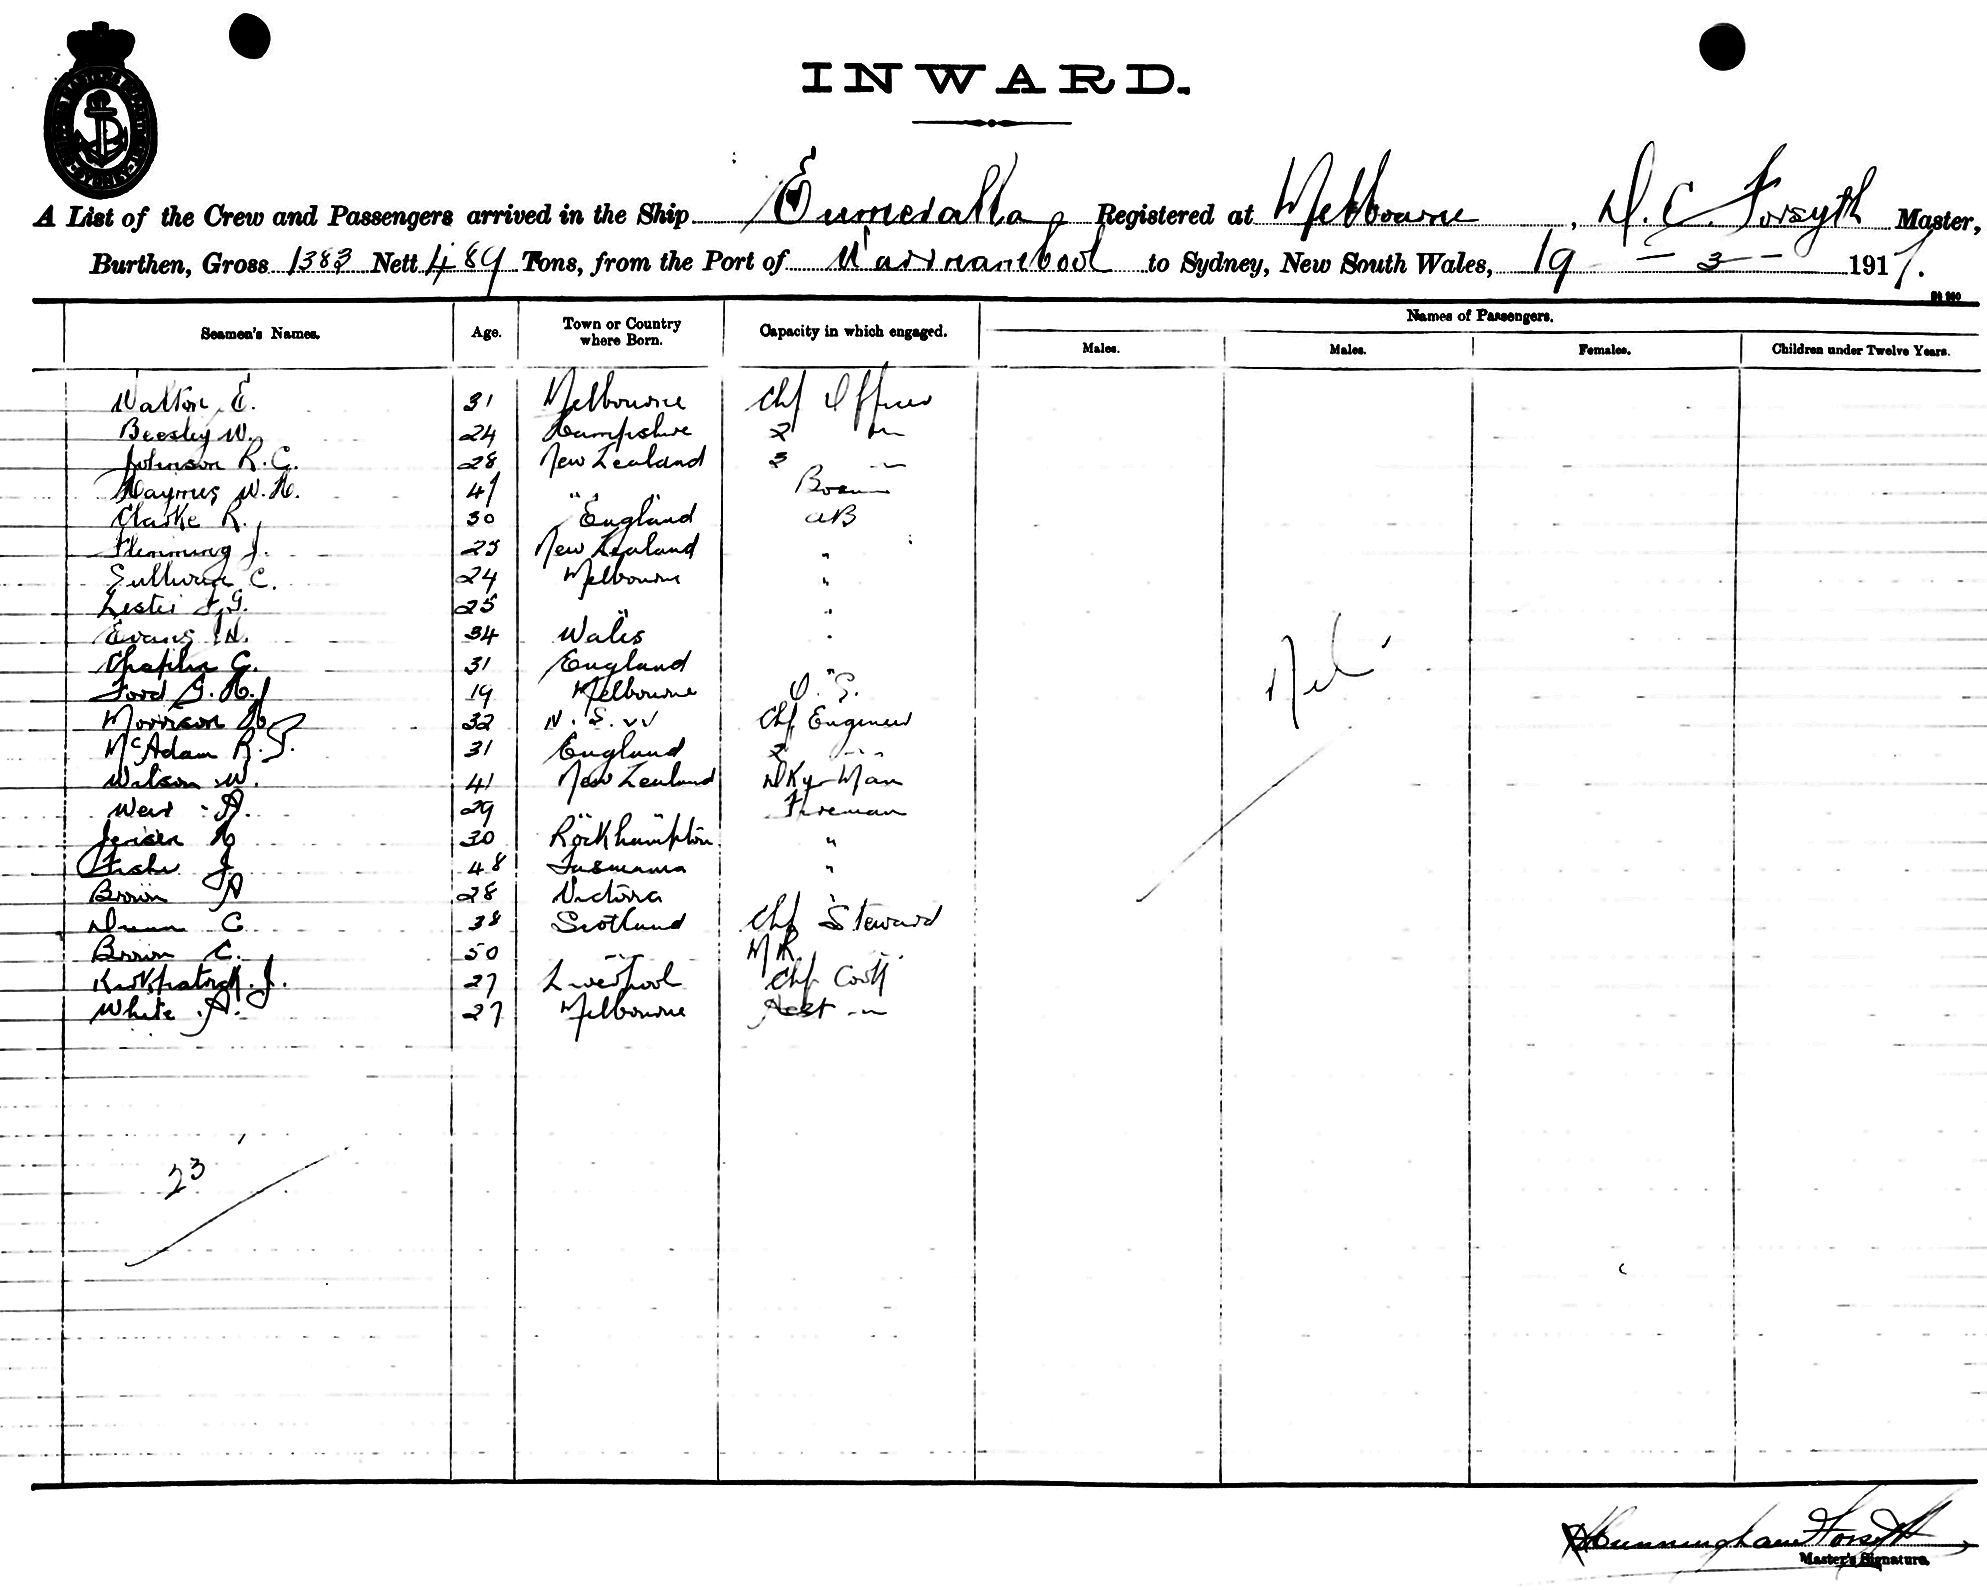 INWARD.
A List of the Crew and Passengers arrived in the Ship Eumeralla Registered at Melbourne, D. C. Forsyth Master,
Burthen, Gross 1383 Nett 489 Tons, from the Port of Warrnambool to Sydney, New South Wales, 19 - 3 - 1917.
Seamen's Names. Age. Town or Country where Born. Capacity in which engaged. Names of Passengers.
Males. Males. Females. Children under Twelve Years.
Walton E. 31 Melbourne Chf Officer
Beesley W. 24 Hampshire 2 "
Johnson R. C. 28 New Zealand 3 "
Haymes W. H. 41 " " Bosun
Clarke R. 30 England AB
Flemming J. 25 New Zealand "
Sullivan C. 24 Melbourne "
Lester J. G. 25 " "
Evans W. 34 Wales "
Chaplin G. 31 England "
Ford G. H. 19 Melbourne O.S.
Morrison 32 N.S.W Chf Engineer
McAdam R. T. 31 England 2 "
Wilson W. 41 New Zealand Dky-Man
Weir A. 29 " " Fireman
Jensen H 30 Rockhampton "
Fisher J. 48 Tasmania "
Brown A 28 Victoria "
Dunn C 38 Scotland Chf Steward
Brown C. 50 " M R "
Kirkpatrick J. 27 Liverpool Chf Cook
White A. 27 Melbourne Asst "
Nil
23
Cunningham Forsyth
Master's Signature.